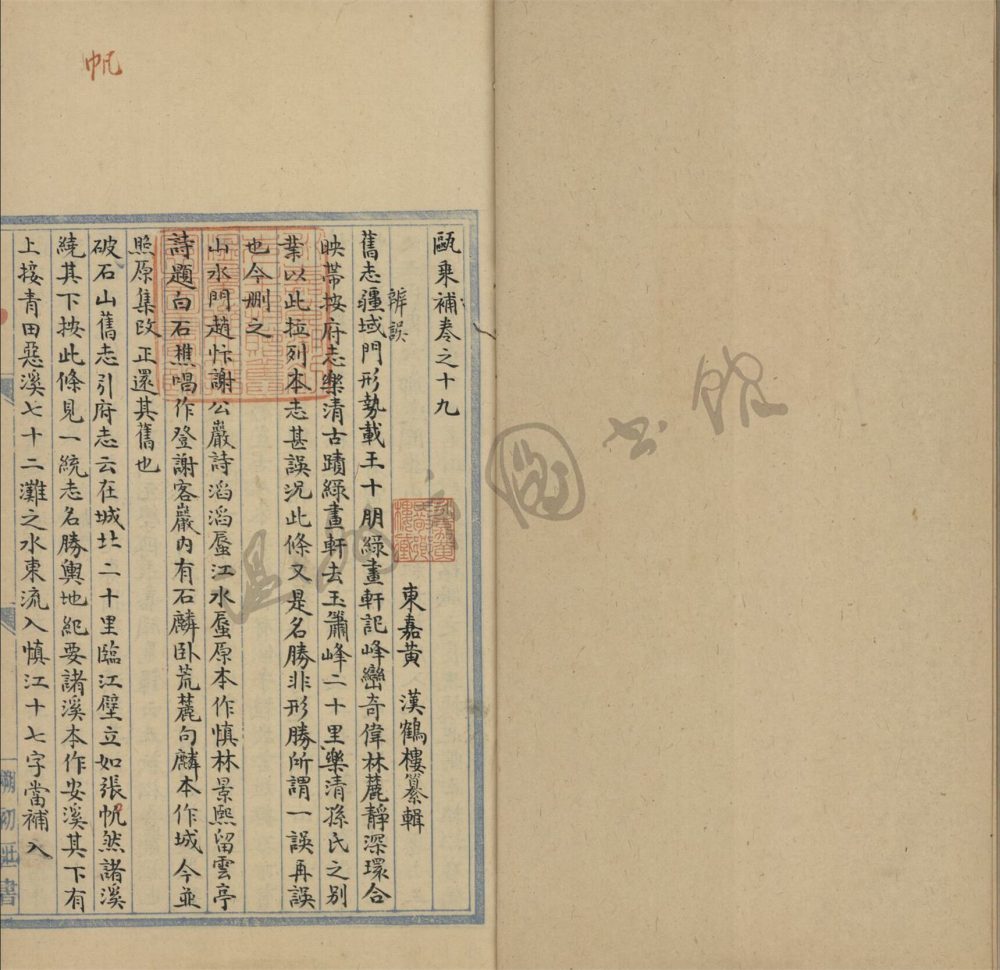 甌乘補卷之十九
東嘉黃　漢鶴樓纂輯
辨誤
舊志疆域門形勢載王十朋綠畫軒記峰巒奇偉林麓靜深環合
映帶按府志樂清古蹟綠畫軒去玉簫峰二十里樂清孫氏之別
業以此拉列本志甚誤況此條又是名勝非形勝所謂一誤再誤
也今刪之
山水門趙忭謝公巖詩滔滔蜃江水蜃原本作慎林景熙留雲亭
詩題白石樵唱作登謝客巖内有石麟卧荒麓句麟本作城今並
照原集改正還其舊也
破石山舊志引府志云在城北二十里臨江壁立如張帆然諸溪
繞其下按此條見一統志名勝輿地紀要諸溪本作安溪其下有
上接青田惡溪七十二灘之水東流入慎江十七字當補入
帆
溫州圖書館